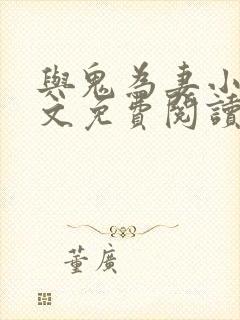 與鬼為妻小
文免費閱讀
董廣